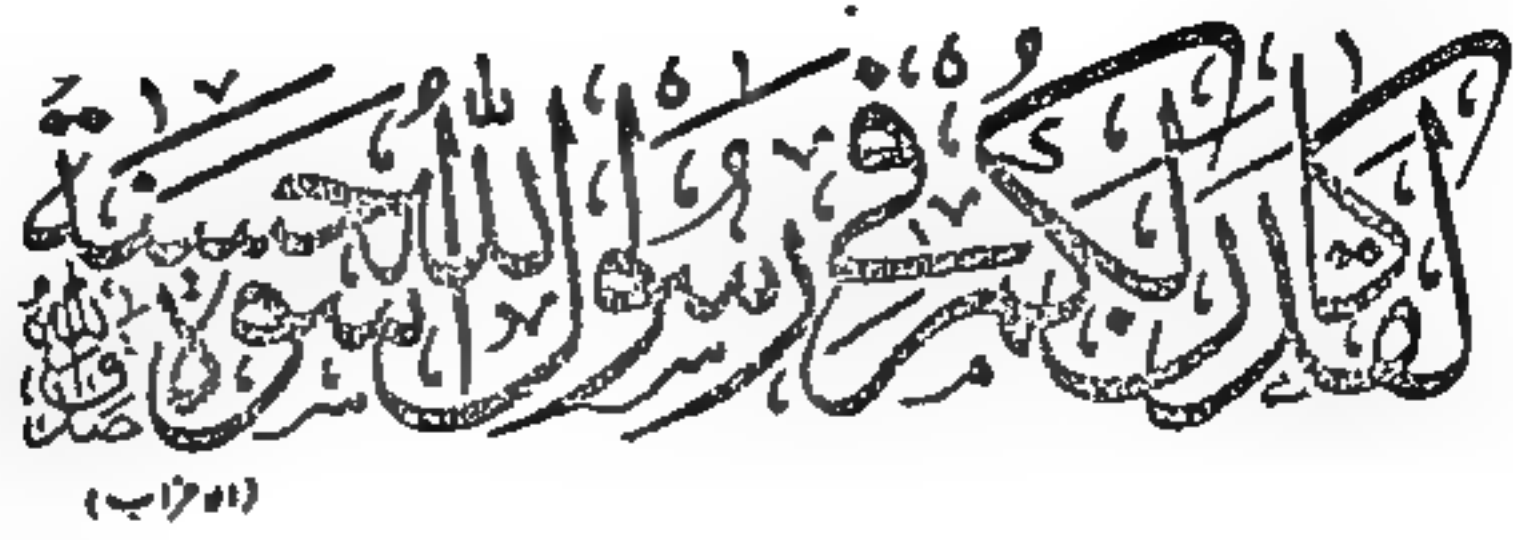 لقد كان لكم في رسول الله أسوة حسنة
صدق الله
(الاحزاب)